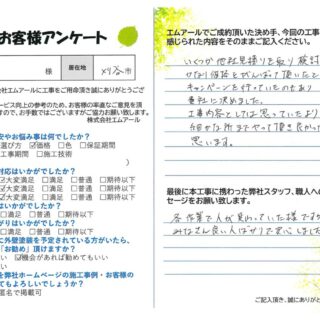 お客様アンケート
様
居在地
刈谷市
会社エムアールに工事をご用命頂き誠にありがとうござ
ービス向上の参考のため、お客様の率直なご意見を頂
ますので、お手数ではございますがご協力お願い致します。
株式会社エムアール
安やお悩み事は何でしたか？
選び方 ☑価格 □色 □保証期間
工事期間 □施工技術
対応はいかがでしたか？
☑大変満足 □満足 □普通 □期待以下
はいかがでしたか？
☑大変満足 □満足 □普通 □期待以下
がりはいかがでしたか？
□満足 □普通 □期待以下
に外壁塗装を予定されている方がいたら、
「お勧め」頂けますか？
い ☑機会があれば勧めてもいい
い
を弊社ホームページの施工事例・お客様の
てもよろしいでしょうか？
匿名で掲載可
エムアールでご成約頂いた決め手、今回の工事
感じられた内容をそのままご記入ください。
いくつか他社見積りを取り検討
かなり値段とがんばって頂いたこ
キャンペーンを行っていたのもあり
貴社に決めました。
工事内容としては思っていたより
細かな所までやって頂き良かった
思います。
最後に本工事に携わった弊社スタッフ、職人への
セージをお願いします。
各作業で人が変わっていた様ですが
みなさん良い人ばかりで安心しました
ご記入頂き、誠にありがとう